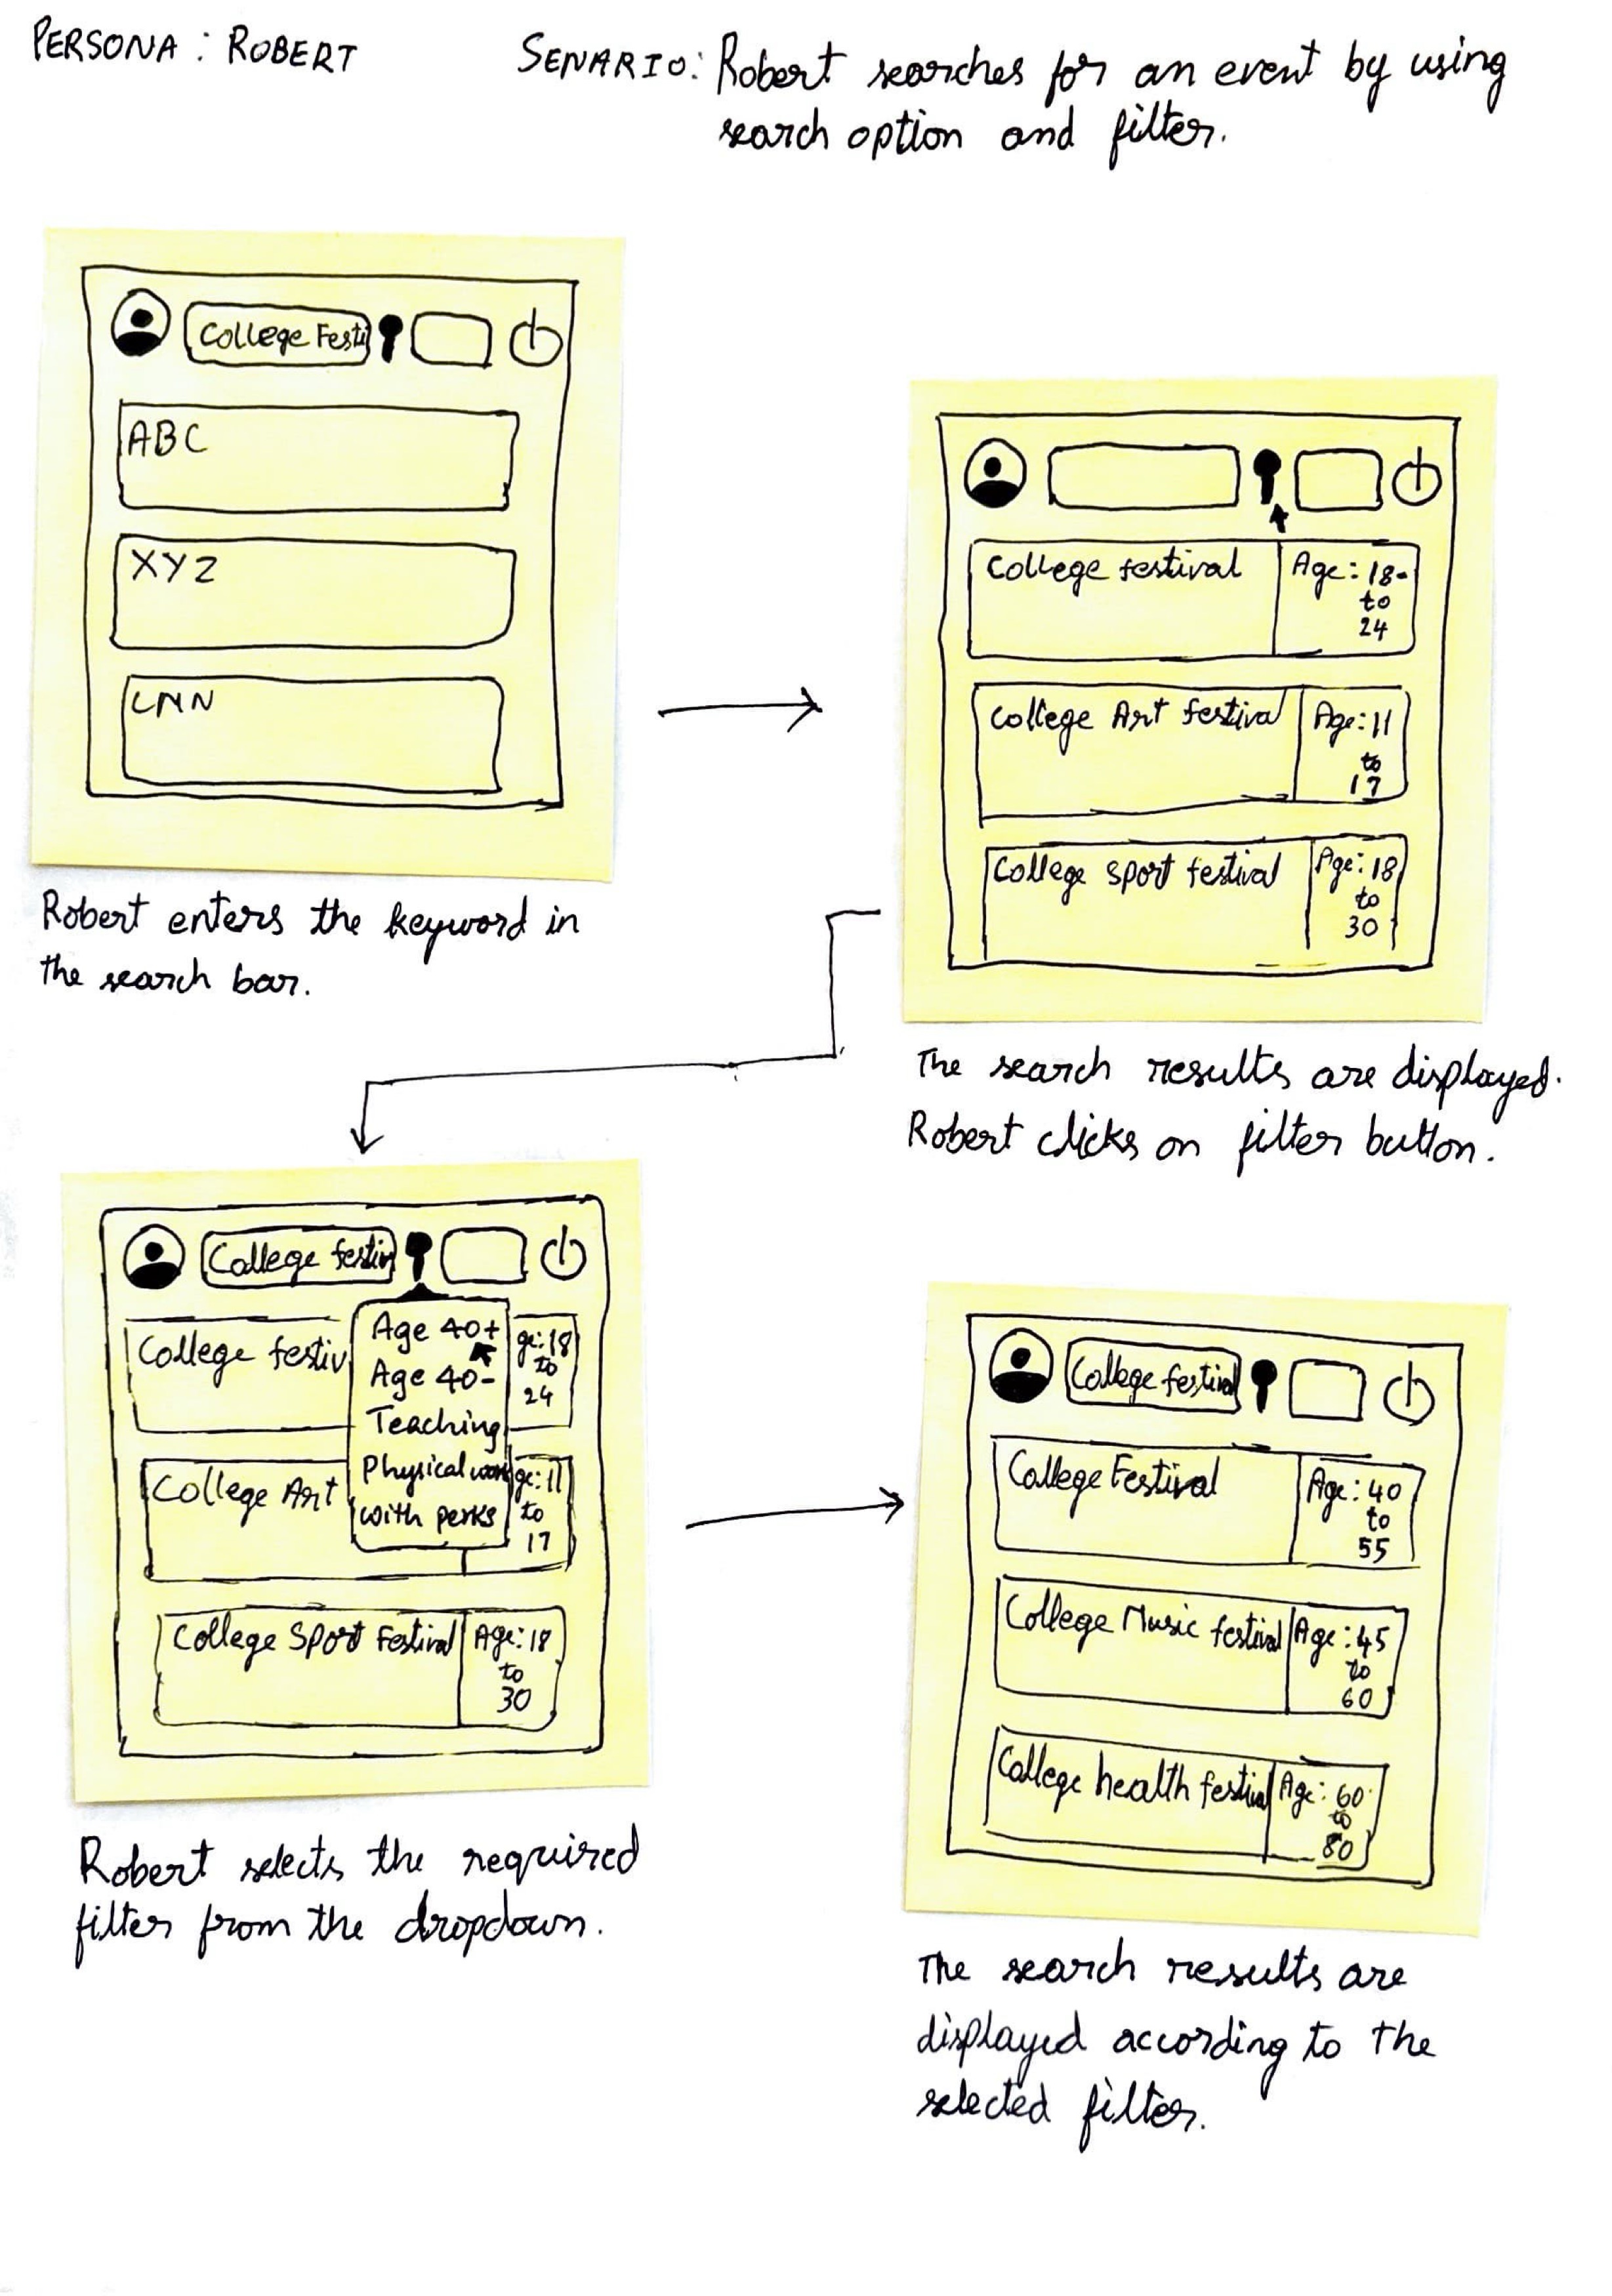 PERSONA : ROBERT
SENARIO: Robert searches for an event by using
search option and filter.
College Festi
ABC
XYZ
LMN
Robert enters the keyword in
the search bar.
College festival
Age: 18-
to
24
College Art festival
Age: 11
to
17
College sport festival
Age: 18
to
30
The search results are displayed.
Robert clicks on filter button.
College festiv
Age 40+
Age 40-
Teaching
Physical work
with perks
College festiv
ge: 18
to
24
College Art
ge: 11
to
17
College Sport Festival
Age: 18
to
30
Robert selects the required
filter from the dropdown.
College festival
College Festival
Age: 40
to
55
College Music festival
Age: 45
to
60
College health festival
Age: 60
to
80
The search results are
displayed according to the
selected filter.